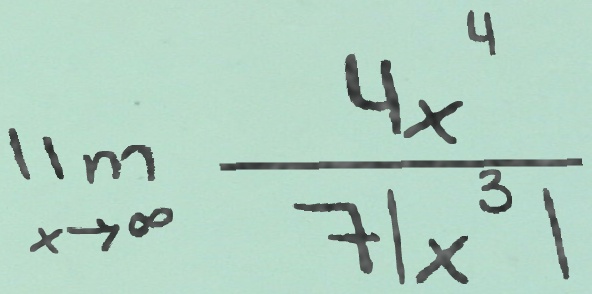 lim x→∞ 4x^4 / 7|x^3|